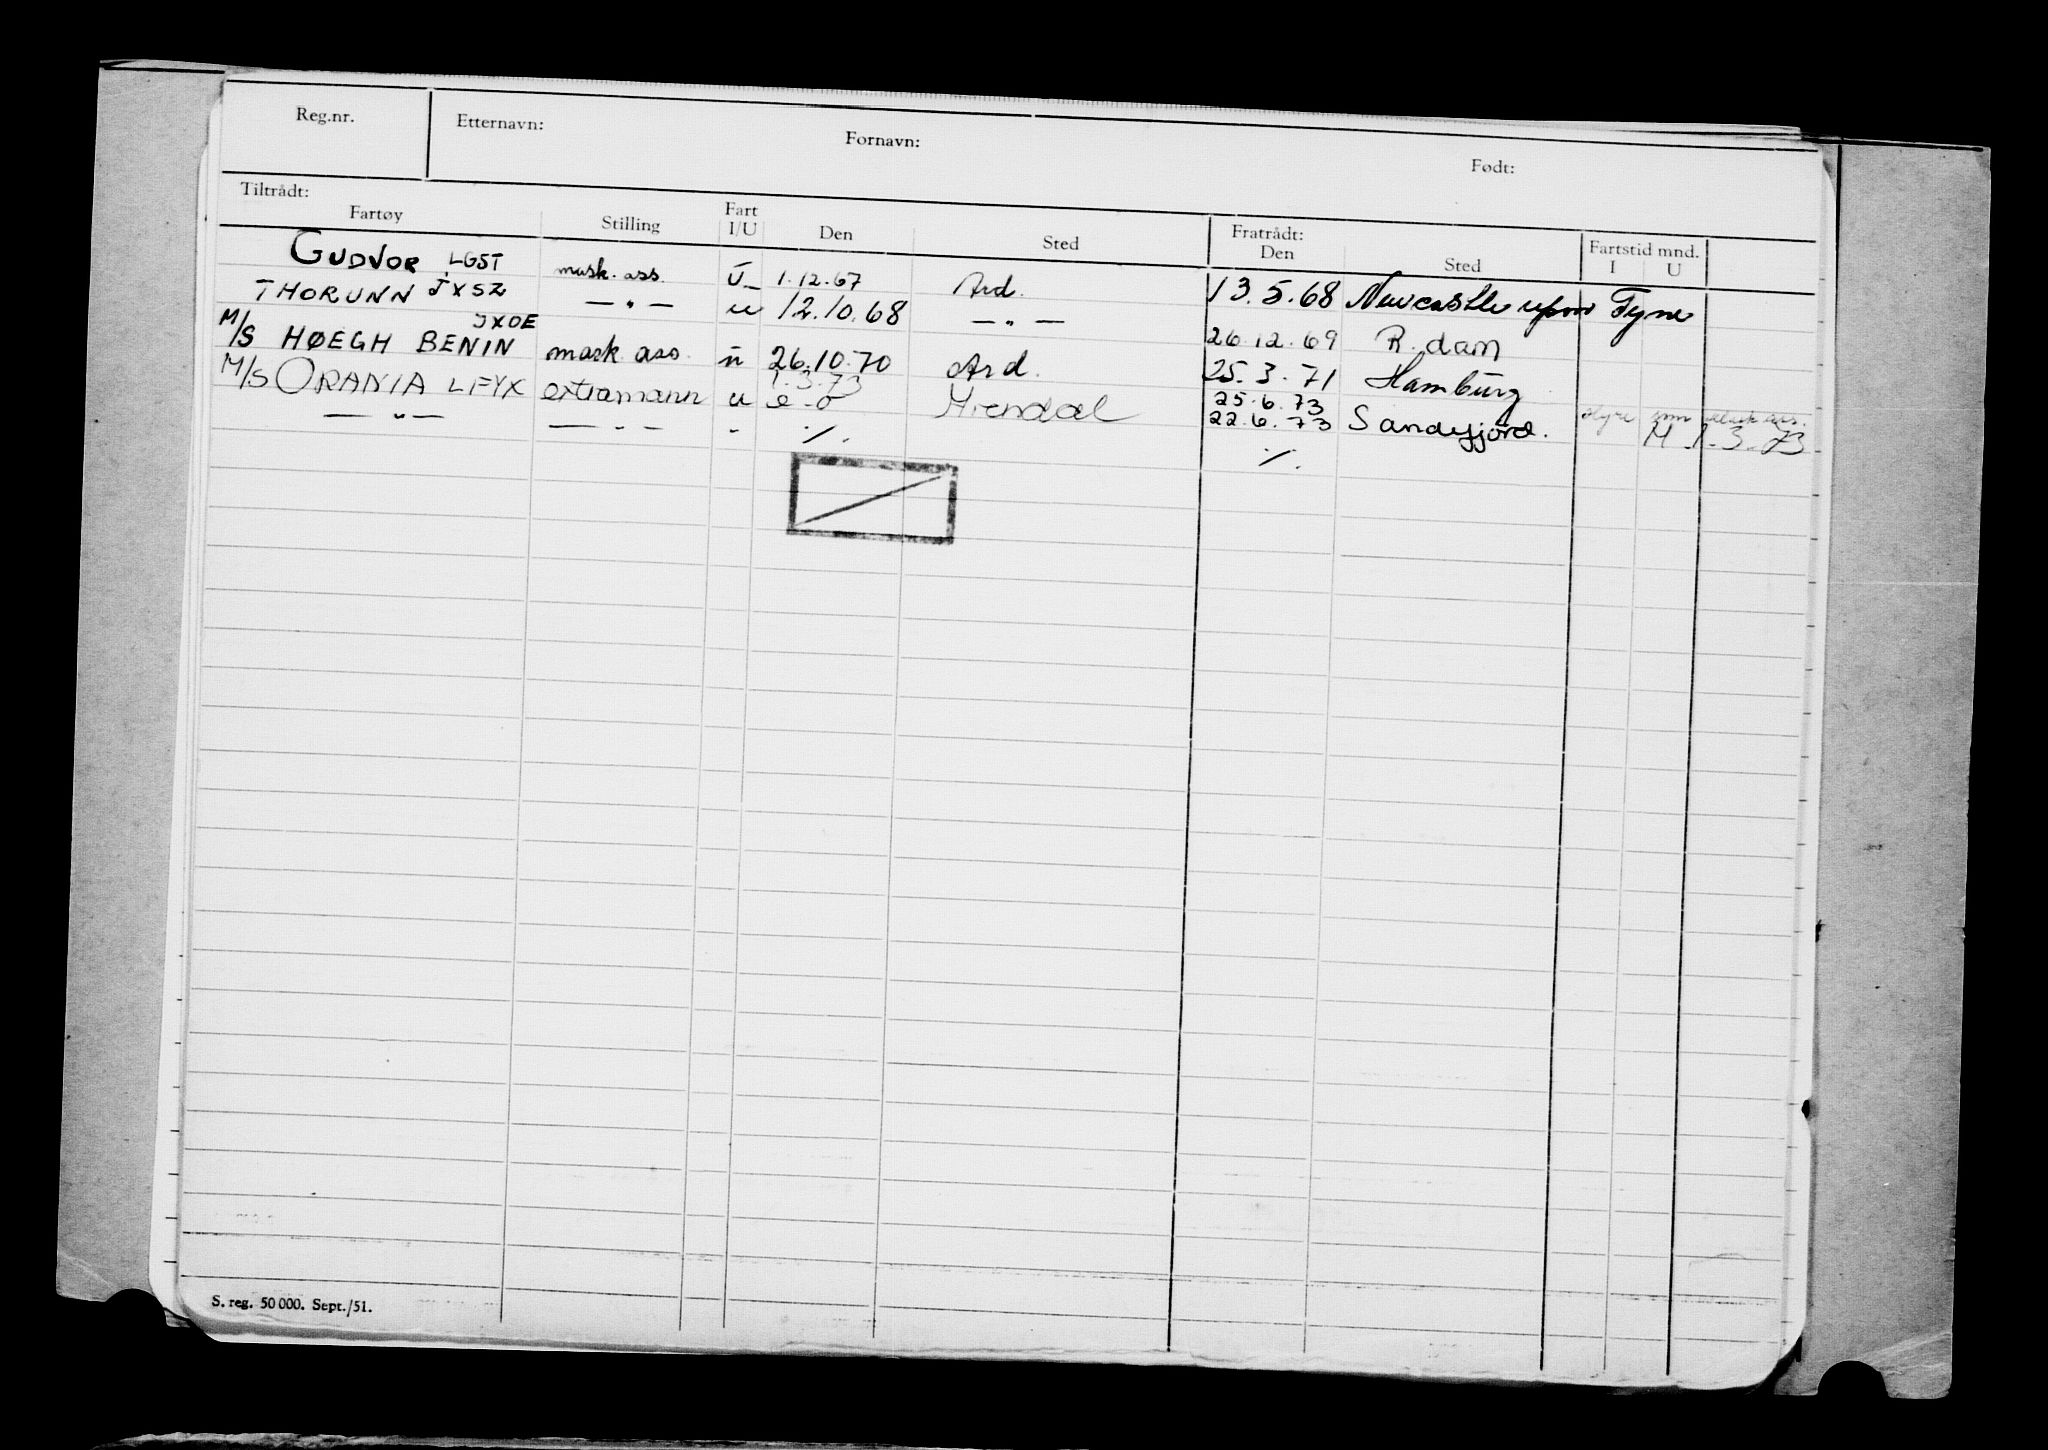 Reg.nr. Etternavn: Fornavn: Født:
Tiltrådt: Fratrådt: Fartstid mnd.
Fartøy Stilling Fart I/U Den Sted Den Sted I U
GUDVOR LGST mask. ass. U 1.12.67 Ard. 13.5.68 Newcastle upon Tyne
THORUNN JXSZ — " — u 12.10.68 — " — 26.12.69 R.dam
JXOE
M/S HØEGH BENIN mask. ass. u 26.10.70 Ard. 25.3.71 Hamburg
1.3.73 25.6.73
M/S ORANIA LFYX extramann u Arendal 22.6.73 Sandefjord.
— " — — " — " ./. ./. M 1.3.73
S. reg. 50 000. Sept./51.